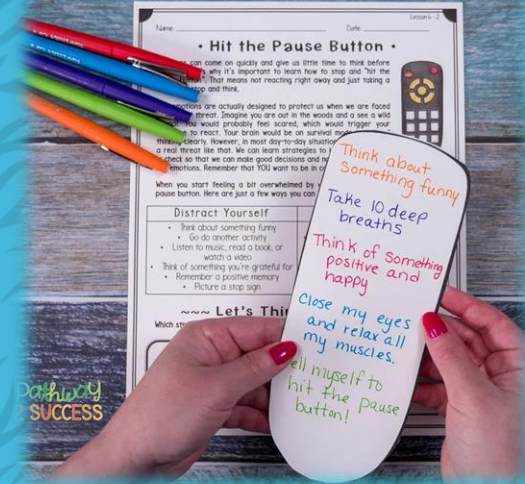 Lesson 6 - 2
Name: Date:
• Hit the Pause Button •
can come on quickly and give us little time to think before
why it's important to learn how to stop and "hit the
That means not reacting right away and just taking a
stop and think.
are actually designed to protect us when we are faced
threat. Imagine you are out in the woods and a see a wild
would probably feel scared, which would trigger your
to react. Your brain would be on survival
clearly. However, in most day-to-day
a real threat like that. We can learn strategies to
check so that we can make good decisions and
emotions. Remember that YOU want to be in
When you start feeling a bit overwhelmed by
pause button. Here are just a few ways you can
Distract Yourself
• Think about something funny
• Go do another activity
• Listen to music, read a book, or
watch a video
• Think of something you're grateful for
• Remember a positive memory
• Picture a stop sign
~~~ Let's
Which
Think about
something funny
Take 10 deep
breaths
Think of something
positive and
happy
Close my eyes
and relax all
my muscles.
Tell myself to
hit the pause
button!
pathway
2 SUCCESS